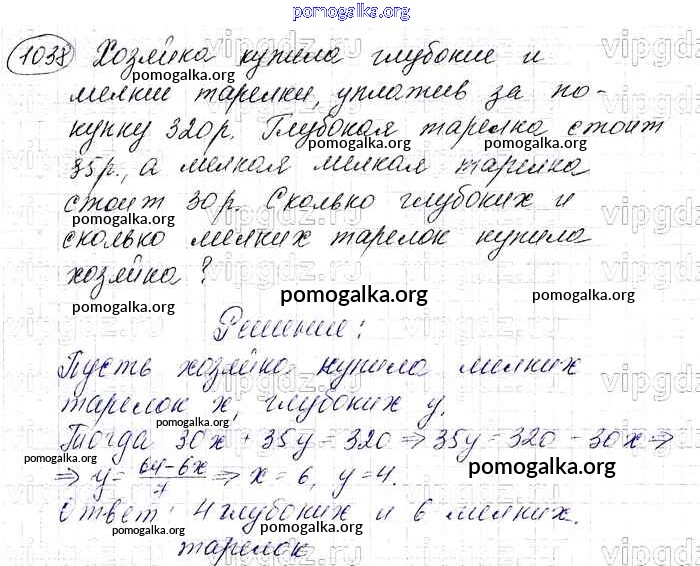 pomogalka.org
1038 Хозяйка купила глубокие и
pomogalka.org
мелкие тарелки, уплатив за по-
купку 320 р. Глубокая тарелка стоит
pomogalka.org pomogalka.org
35 р., а мелкая мелкая тарелка
стоит 30 р. Сколько глубоких и
pomogalka.org pomogalka.org
сколько мелких тарелок купила
хозяйка?
pomogalka.org pomogalka.org
pomogalka.org
Решение:
Пусть хозяйка купила мелких
pomogalka.org
тарелок x, глубоких y.
pomogalka.org
Тогда 30x + 35y = 320 ⇒ 35y = 320 - 30x ⇒
pomogalka.org pomogalka.org
⇒ y = (64-6x)/7 ⇒ x = 6, y = 4.
pomogalka.org
Ответ: 4 глубоких и 6 мелких.
pomogalka.org pomogalka.org
тарелок
vipgdz.ru